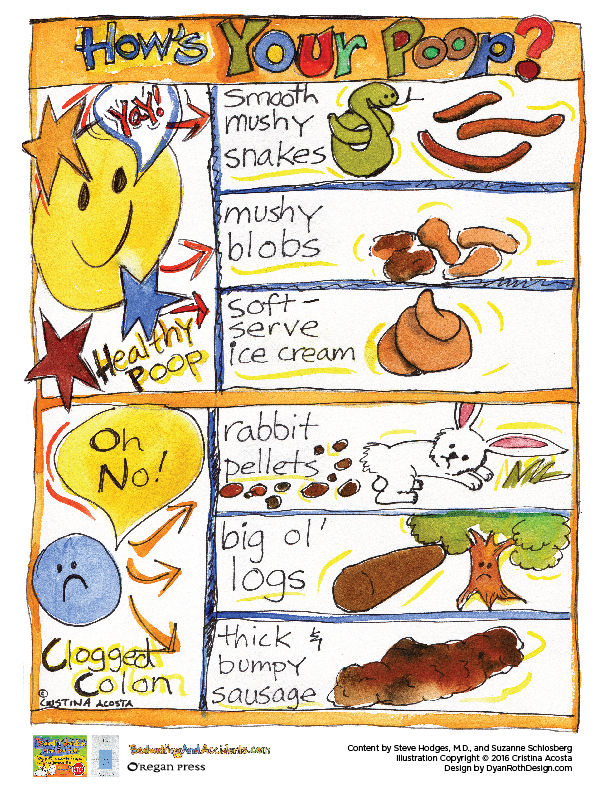 How's Your Poop?
Yay!
Healthy
Poop
smooth
mushy
snakes
mushy
blobs
soft-
serve
ice cream
Oh
No!
Clogged
Colon
©
CRISTINA ACOSTA
rabbit
pellets
big ol'
logs
thick &
bumpy
sausage
BedwettingAndAccidents.com
O'REGAN PRESS
Content by Steve Hodges, M.D., and Suzanne Schlosberg
Illustration Copyright © 2016 Cristina Acosta
Design by DyanRothDesign.com